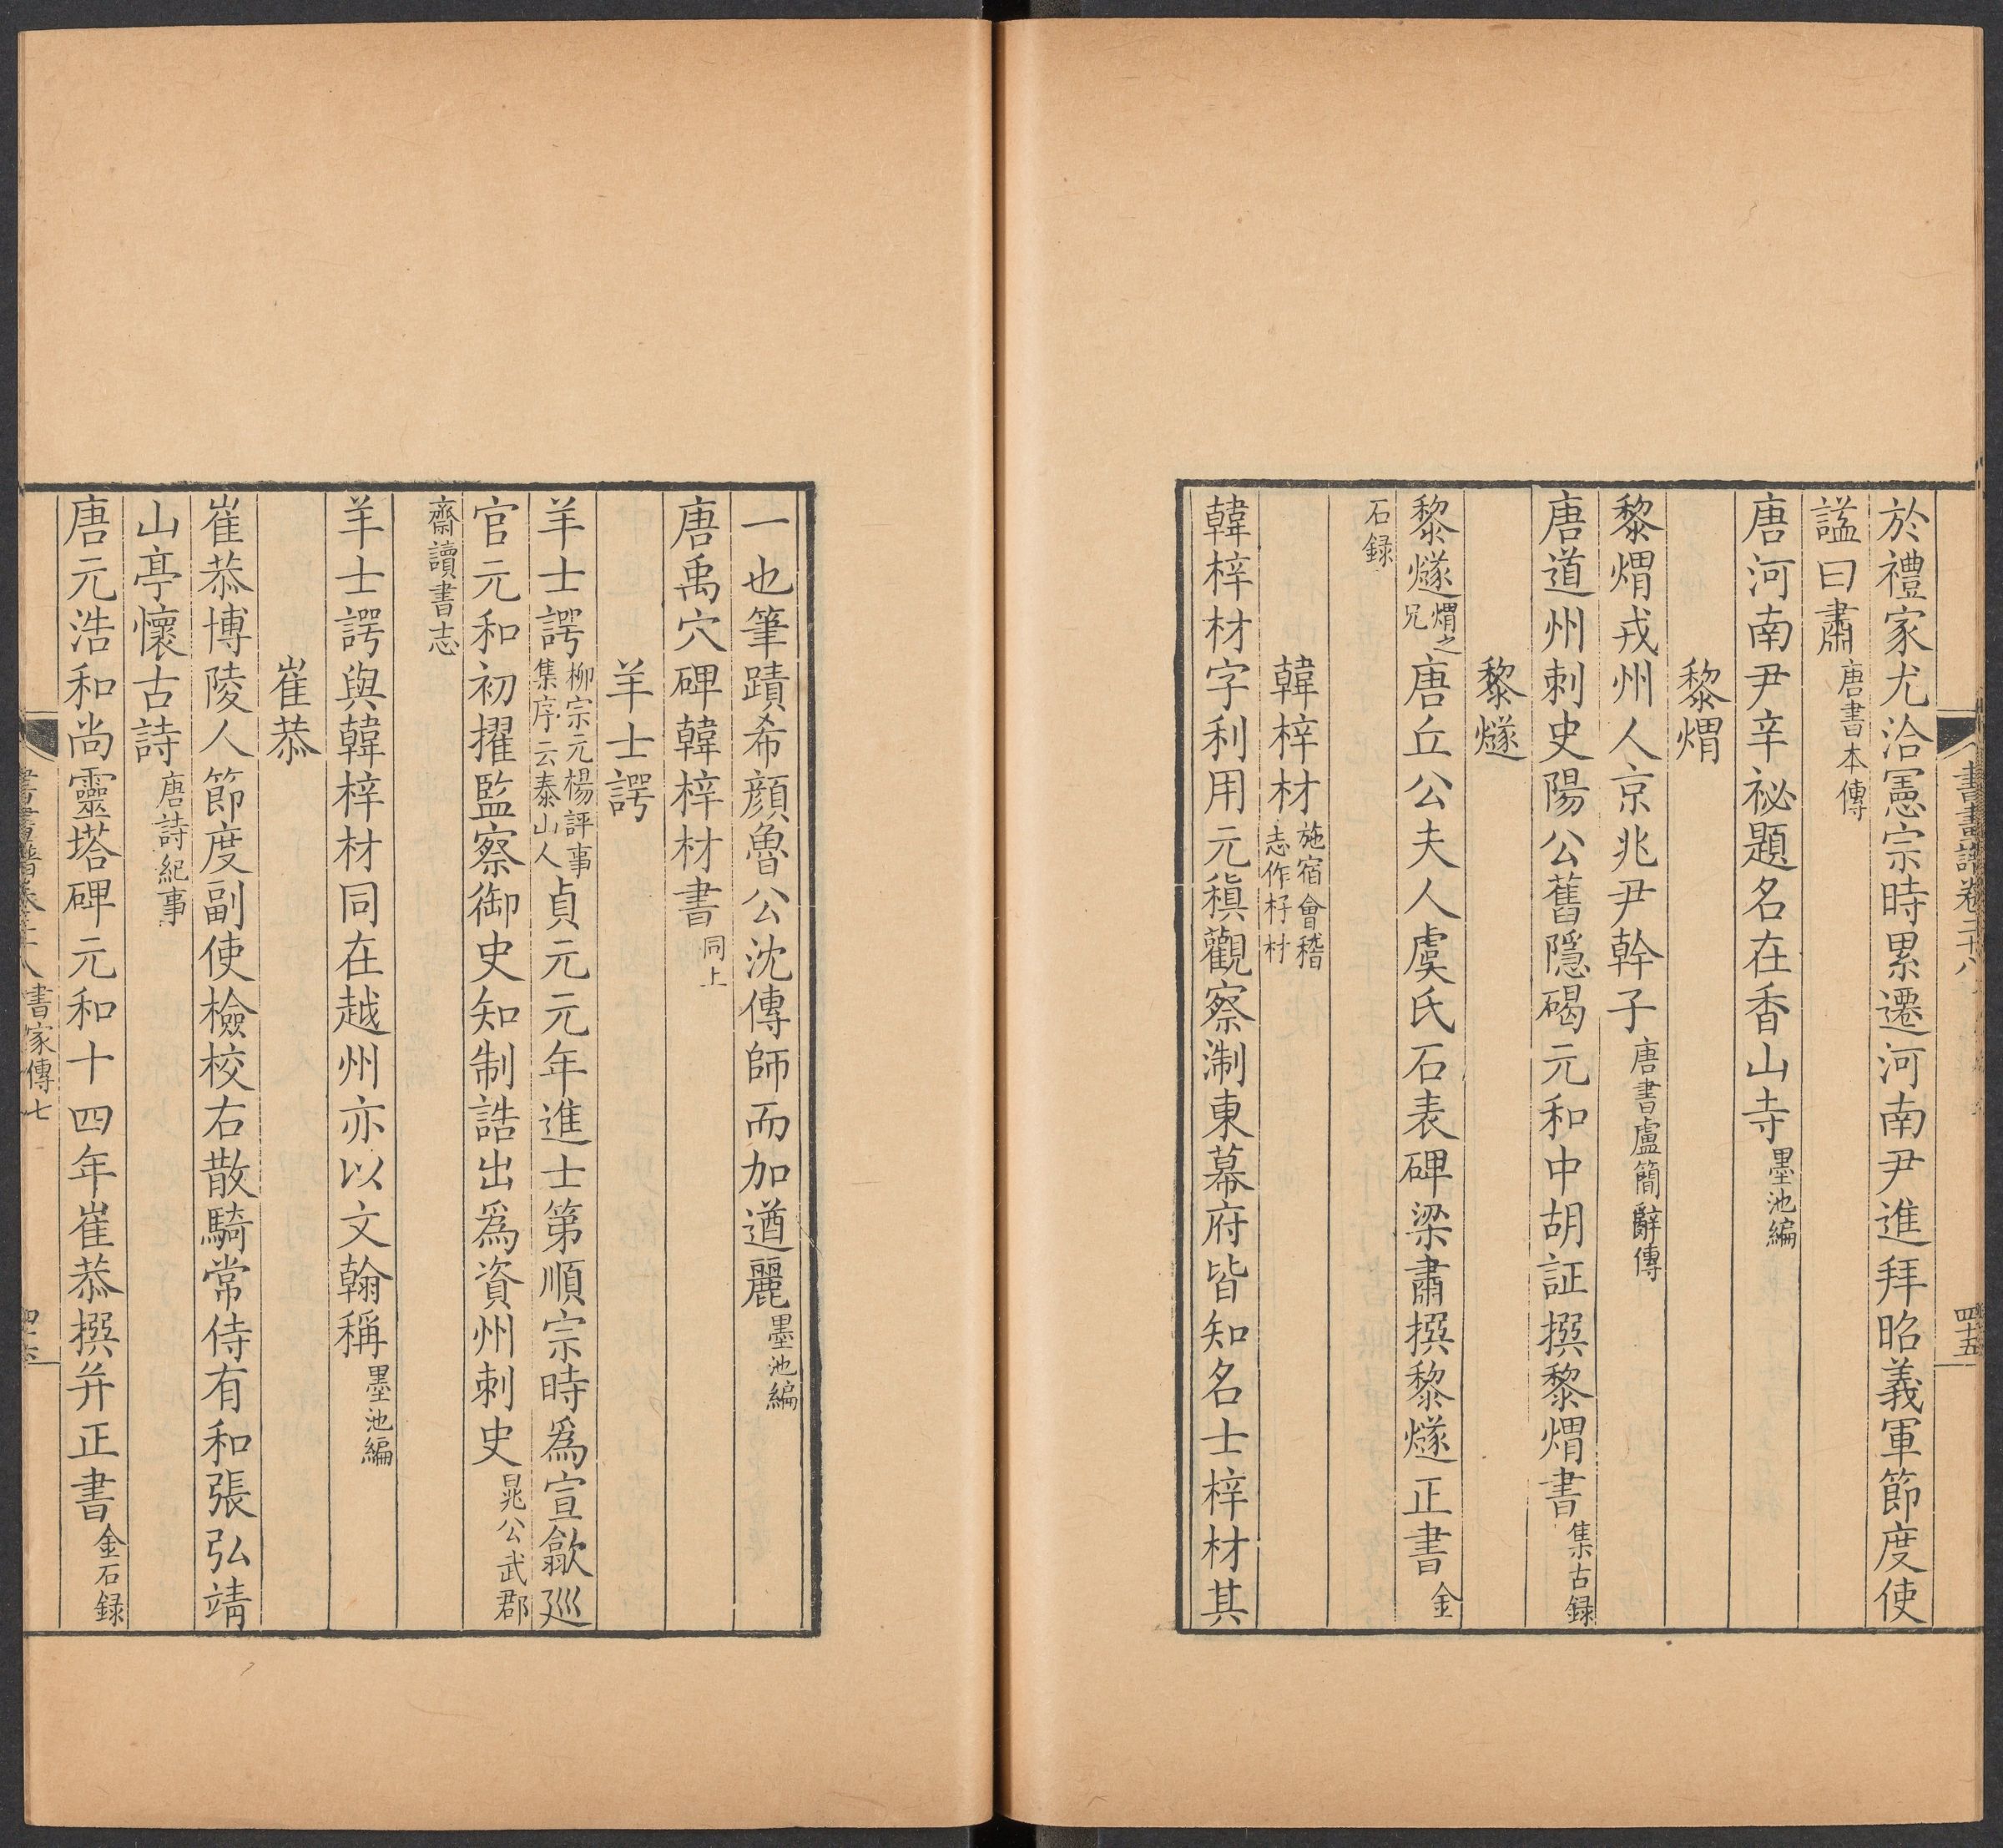 書畫譜卷二十八
四十五
於禮家尤洽憲宗時累遷河南尹進拜昭義軍節度使
謚曰肅唐書本傳
唐河南尹辛祕題名在香山寺墨池編
黎煟
黎煟戎州人京兆尹幹子唐書盧簡辭傳
唐道州刺史陽公舊隱碣元和中胡証撰黎煟書集古録
黎燧
黎燧煟之兄唐丘公夫人虞氏石表碑梁肅撰黎燧正書金
石録
韓梓材施宿會稽志作杍材
韓梓材字利用元稹觀察淛東幕府皆知名士梓材其
一也筆蹟希顔魯公沈傳師而加遒麗墨池編
唐禹穴碑韓梓材書同上
羊士諤
羊士諤柳宗元楊評事集序云泰山人貞元元年進士第順宗時爲宣歙廵
官元和初擢監察御史知制誥出爲資州刺史晁公武郡
齋讀書志
羊士諤與韓梓材同在越州亦以文翰稱墨池編
崔恭
崔恭博陵人節度副使檢校右散騎常侍有和張弘靖
山亭懷古詩唐詩紀事
唐元浩和尚靈塔碑元和十四年崔恭撰并正書金石録
書家傳七